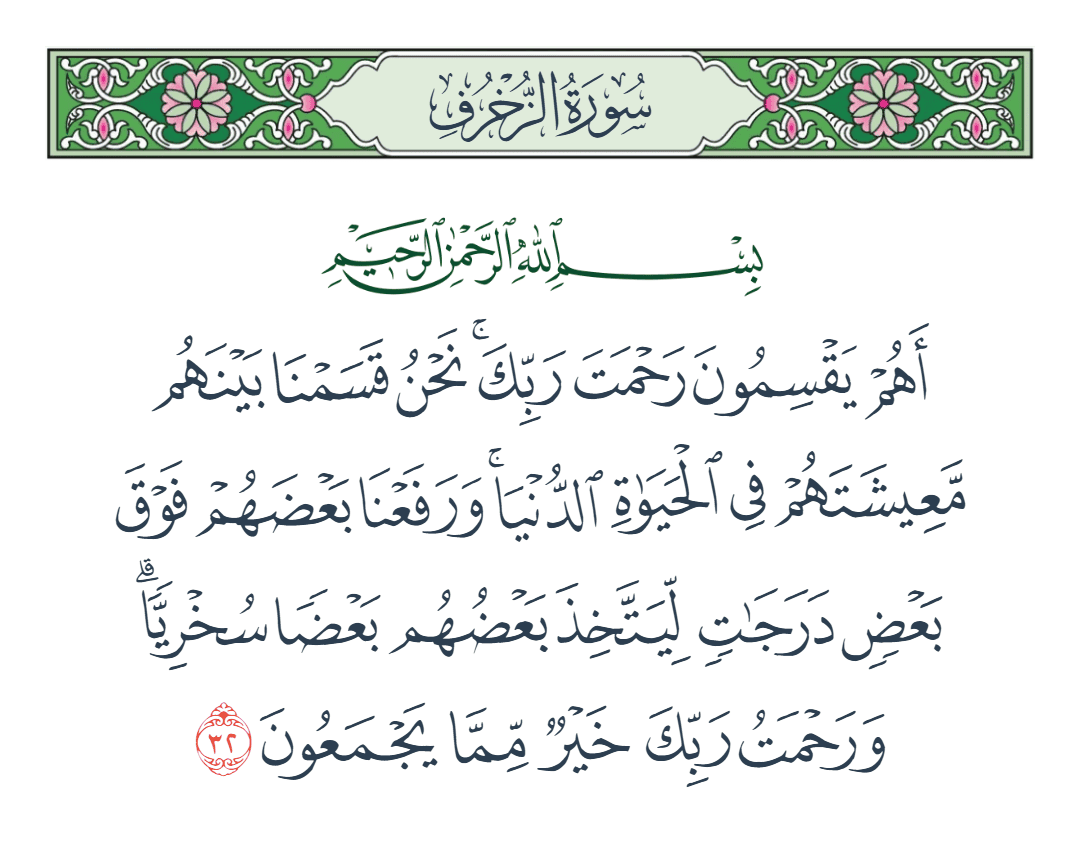 سُورَةُ الزُّخْرُفِ
بِسْمِ ٱللَّهِ ٱلرَّحْمَٰنِ ٱلرَّحِيمِ
أَهُمْ يَقْسِمُونَ رَحْمَتَ رَبِّكَ ۚ نَحْنُ قَسَمْنَا بَيْنَهُم
مَّعِيشَتَهُمْ فِى ٱلْحَيَوٰةِ ٱلدُّنْيَا ۚ وَرَفَعْنَا بَعْضَهُمْ فَوْقَ
بَعْضٍ دَرَجَٰتٍ لِّيَتَّخِذَ بَعْضُهُم بَعْضًا سُخْرِيًّا ۗ
وَرَحْمَتُ رَبِّكَ خَيْرٌ مِّمَّا يَجْمَعُونَ ٣٢